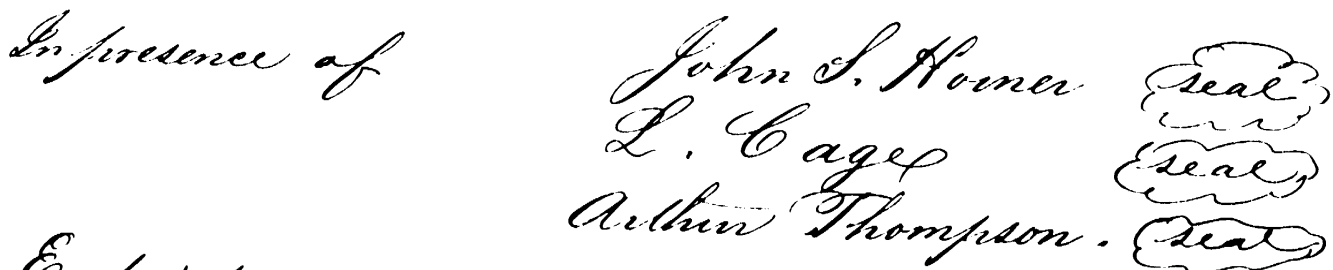 In presence of John S. Horner seal
L. Cage seal
Arthur Thompson. seal